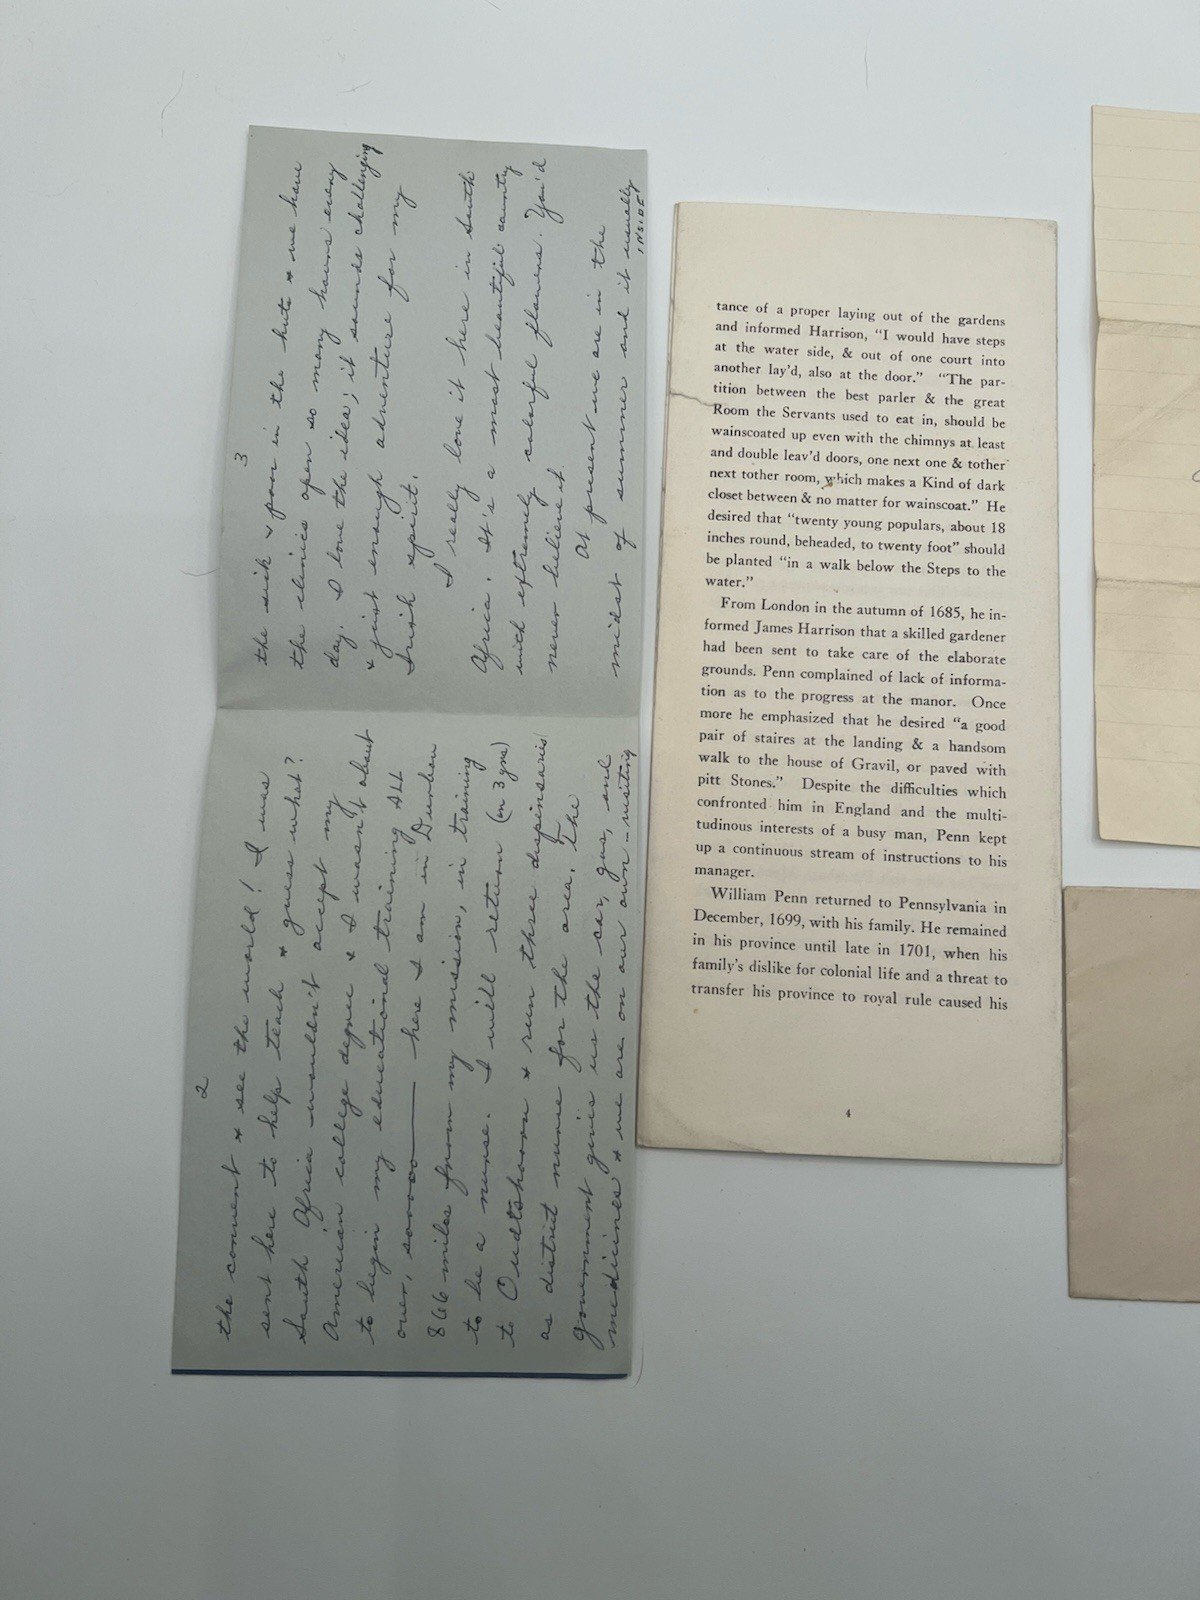 2
the convent & see the world! I was
sent here to help teach & guess what?
South Africa wouldn't accept my
American college degree & I wasn't about
to begin my educational training ALL
over, sooooo —— here I am in Durban
866 miles from my mission, in training
to be a nurse. I will return (in 3 yrs)
to Oudtshoorn & run three dispensaries
as district nurse for the area. The
government gives us the car, gas, and
medicines & we are on our own - visiting
3
the sick & poor in the huts & we have
the clinics open so many hours every
day. I love the idea; it sounds challenging
& just enough adventure for my
Irish spirit.
I really love it here in South
Africa. It's a most beautiful country
with extremely colorful flowers. You'd
never believe it.
At present we are in the
midst of summer and it usually
INSIDE
tance of a proper laying out of the gardens
and informed Harrison, “I would have steps
at the water side, & out of one court into
another lay'd, also at the door.” “The par-
tition between the best parler & the great
Room the Servants used to eat in, should be
wainscoated up even with the chimnys at least
and double leav'd doors, one next one & tother
next tother room, which makes a Kind of dark
closet between & no matter for wainscoat.” He
desired that “twenty young populars, about 18
inches round, beheaded, to twenty foot” should
be planted “in a walk below the Steps to the
water.”
From London in the autumn of 1685, he in-
formed James Harrison that a skilled gardener
had been sent to take care of the elaborate
grounds. Penn complained of lack of informa-
tion as to the progress at the manor. Once
more he emphasized that he desired “a good
pair of staires at the landing & a handsom
walk to the house of Gravil, or paved with
pitt Stones.” Despite the difficulties which
confronted him in England and the multi-
tudinous interests of a busy man, Penn kept
up a continuous stream of instructions to his
manager.
William Penn returned to Pennsylvania in
December, 1699, with his family. He remained
in his province until late in 1701, when his
family's dislike for colonial life and a threat to
transfer his province to royal rule caused his
4